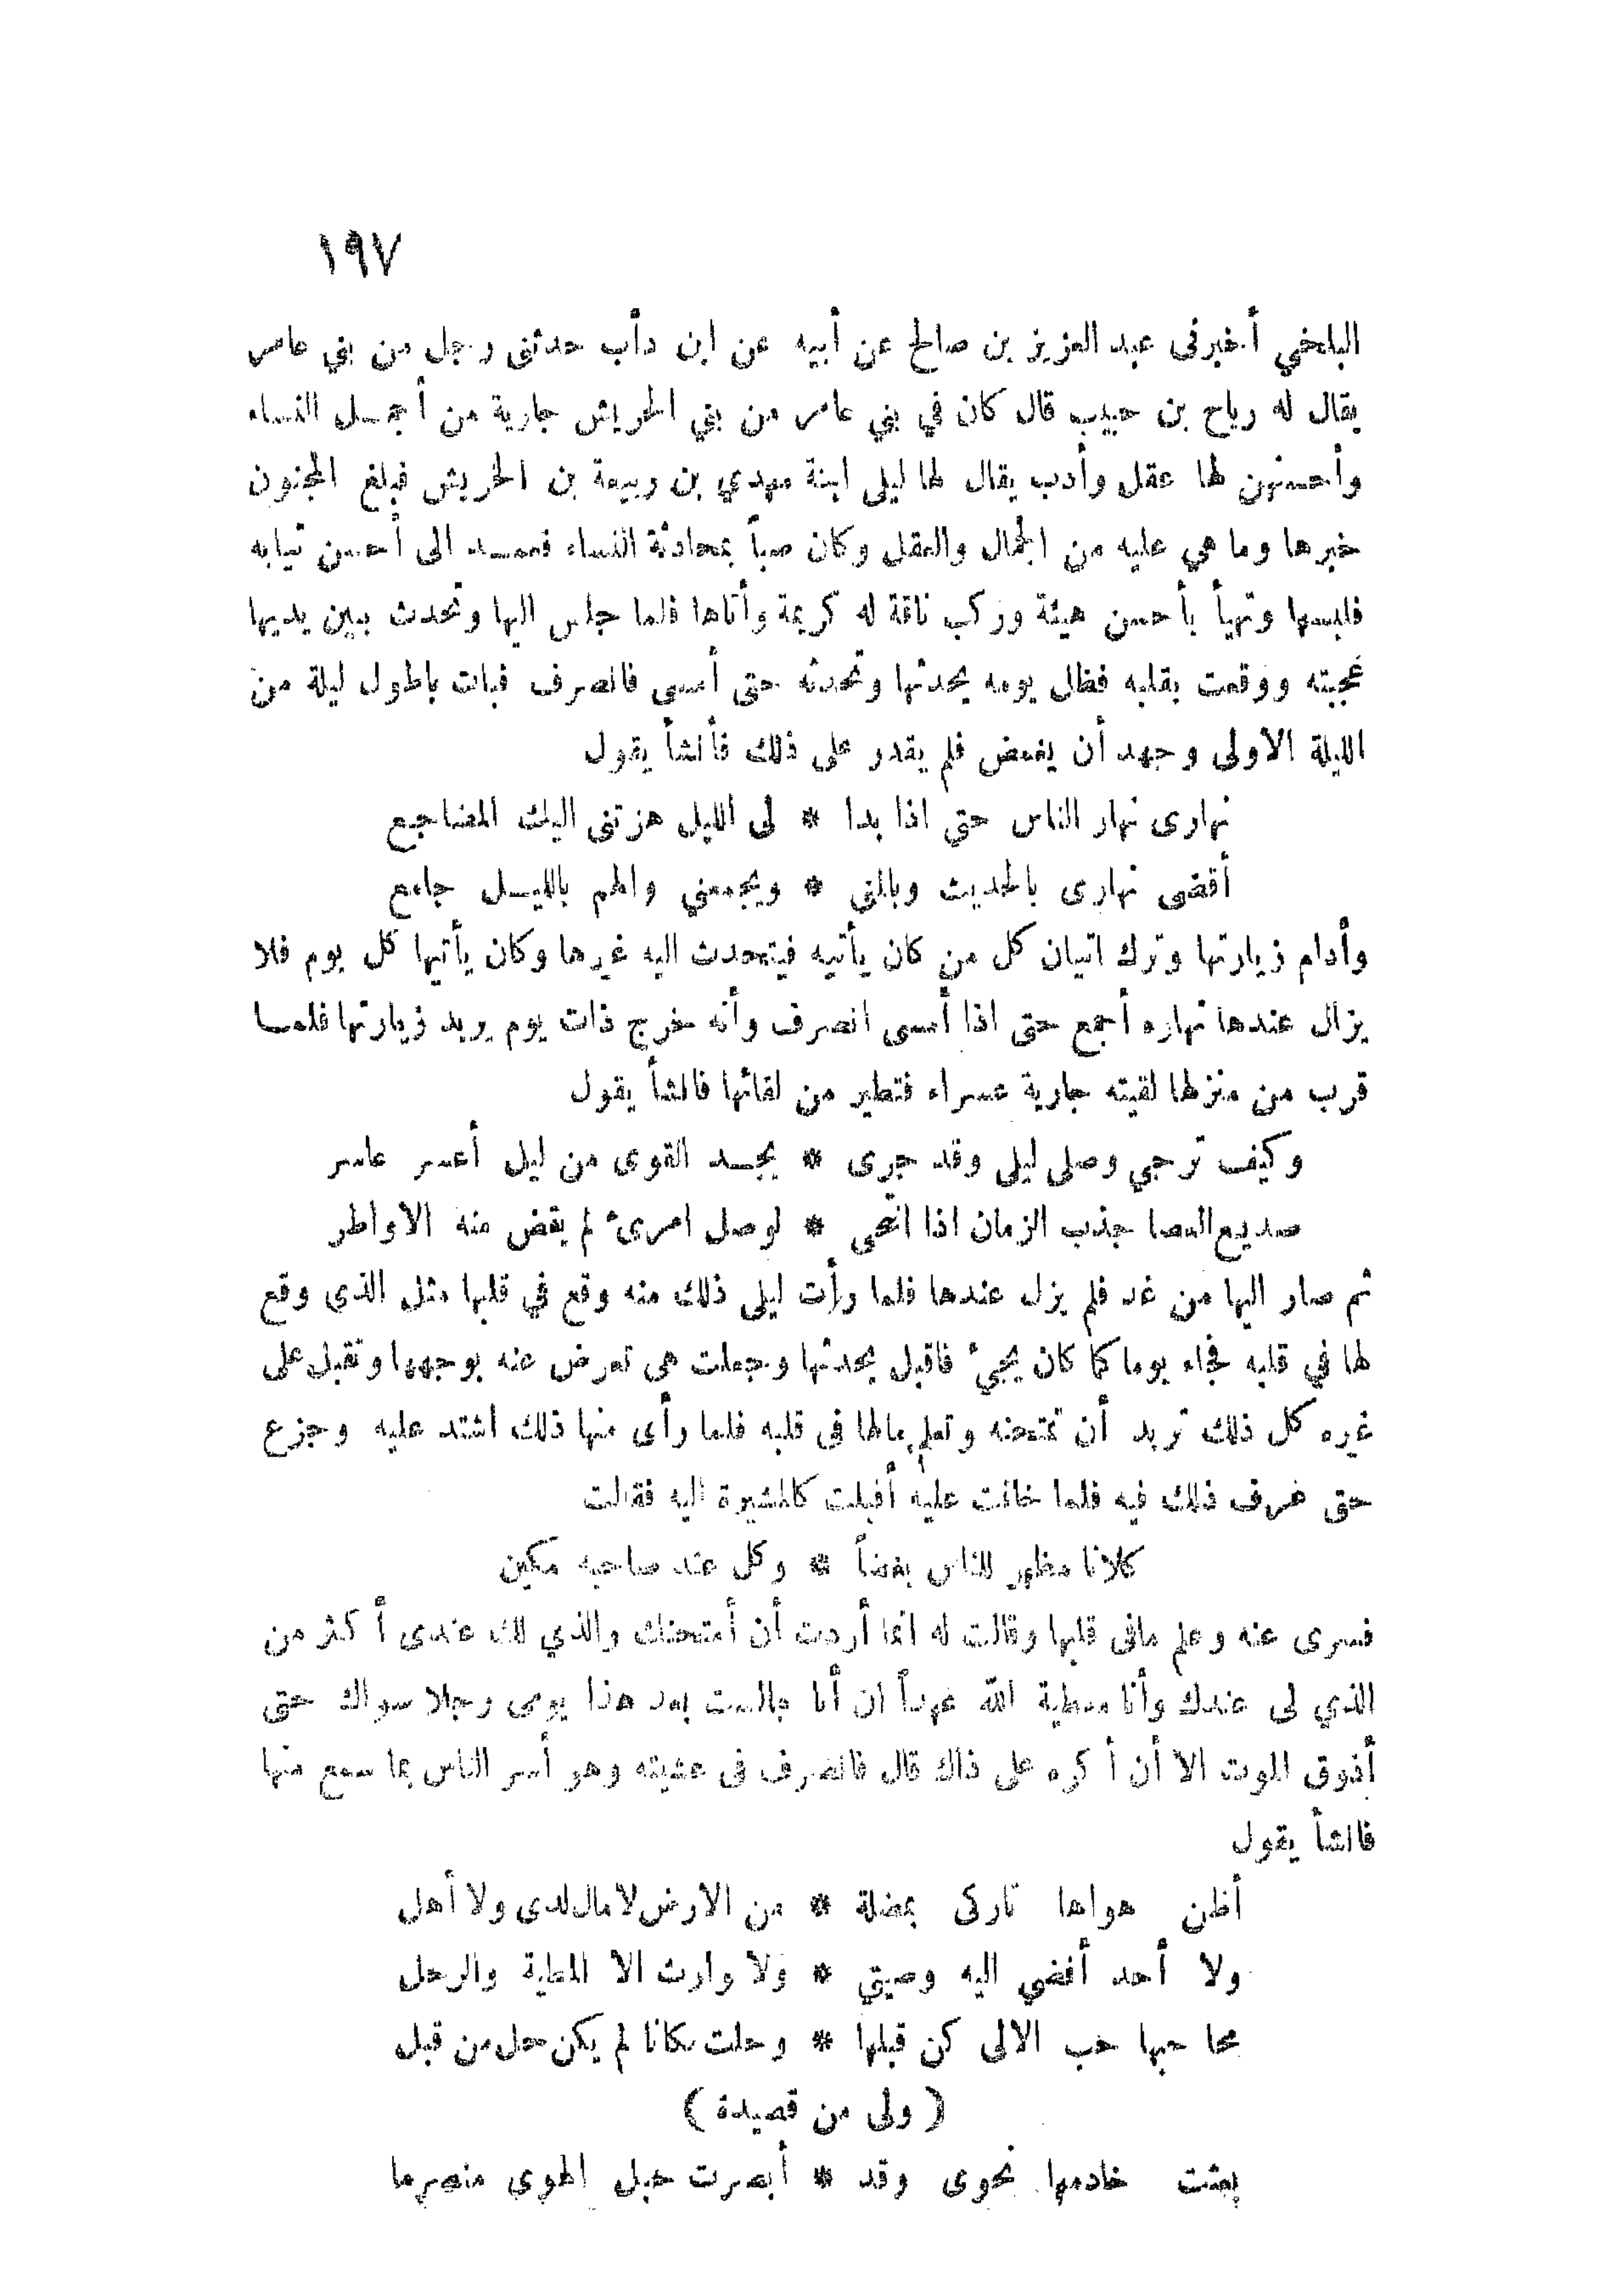 ١٩٧
البلخي أخبرنى عبد العزيز بن صالح عن أبيه عن ابن دأب حدثنى رجل من بني عامر
يقال له رياح بن حبيب قال كان في بني عامر من بني الحريش جارية من أجمل النساء
وأحسنهن لها عقل وأدب يقال لها ليلى ابنة مهدي بن ربيعة بن الحريش فبلغ المجنون
خبرها وما هي عليه من الجمال والعقل وكان صباً بمحادثة النساء فعمد الى أحسن ثيابه
فلبسها وتهيأ بأحسن هيئة وركب ناقة له كريمة وأتاها فلما جلس اليها وتحدث بين يديها
عجبته ووقعت بقلبه فظل يومه يحدثها وتحدثه حتى أمسى فانصرف فبات باطول ليلة من
الليلة الاولى وجهد أن يغمض فلم يقدر على ذلك فأنشأ يقول
نهارى نهار الناس حتي اذا بدا * لى الليل هزتنى اليك المضاجع
أقضى نهارى بالحديث وبالمني * ويجمعني والهم بالليل جامع
وأدام زيارتها وترك اتيان كل من كان يأتيه فيتحدث اليه غيرها وكان يأتيها كل يوم فلا
يزال عندها نهاره أجمع حتى اذا أمسى انصرف وأنه خرج ذات يوم يريد زيارتها فلما
قرب من منزلها لقيته جارية عسراء فتطير من لقائها فانشأ يقول
وكيف ترجي وصل ليلى وقد جرى * بجد القوى من ليل أعسر عاسر
صديع العصا جذب الزمان اذا انتحى * لوصل امرئ لم يقض منه الاواطر
ثم صار اليها من غد فلم يزل عندها فلما رأت ليلى ذلك منه وقع في قلبها مثل الذي وقع
لها في قلبه فجاء يوما كما كان يجيئ فاقبل يحدثها وجعلت هى تعرض عنه بوجهها وتقبل على
غيره كل ذلك تريد أن تمتحنه وتعلم مالها فى قلبه فلما رأى منها ذلك اشتد عليه وجزع
حتى عرف ذلك فيه فلما خافت عليه أقبلت كالمشيرة اليه فقالت
كلانا مظهر للناس بغضاً * وكل عند صاحبه مكين
فسرى عنه وعلم مافى قلبها وقالت له انما أردت أن أمتحنك والذي لك عندى أكثر من
الذي لى عندك وأنا معطية الله عهداً ان أنا جالست بعد هذا يومى رجلا سواك حتى
أذوق الموت الا أن أكره على ذاك قال فانصرف فى عشيته وهو أسر الناس بما سمع منها
فانشأ يقول
أظن هواها تاركى بمضلة * من الارض لا مال لدى ولا أهل
ولا أحد أفضي اليه وصيتي * ولا وارث الا المطية والرحل
محا حبها حب الالى كن قبلها * وحلت مكانا لم يكن حل من قبل
( ولى من قصيدة )
بعثت خادمها نحوى وقد * أبصرت حبل الهوى منصرما